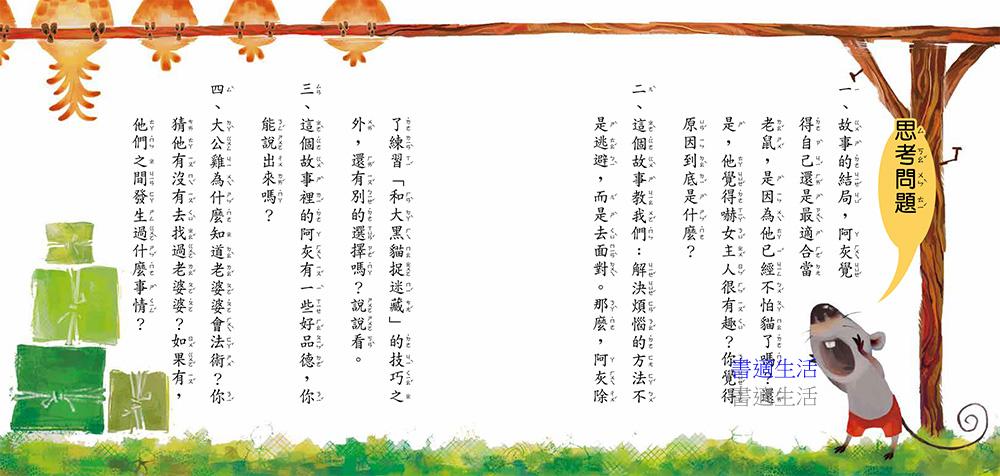 思考問題
一、故事的結局，阿灰覺
得自己還是最適合當
老鼠，是因為他已經不怕貓了嗎？還
是，他覺得嚇女主人很有趣？你覺得
原因到底是什麼？
二、這個故事教我們：解決煩惱的方法不
是逃避，而是去面對。那麼，阿灰除
了練習「和大黑貓捉迷藏」的技巧之
外，還有別的選擇嗎？說說看。
三、這個故事裡的阿灰有一些好品德，你
能說出來嗎？
四、大公雞為什麼知道老婆婆會法術？你
猜他有沒有去找過老婆婆？如果有，
他們之間發生過什麼事情？
書適生活
書適生活